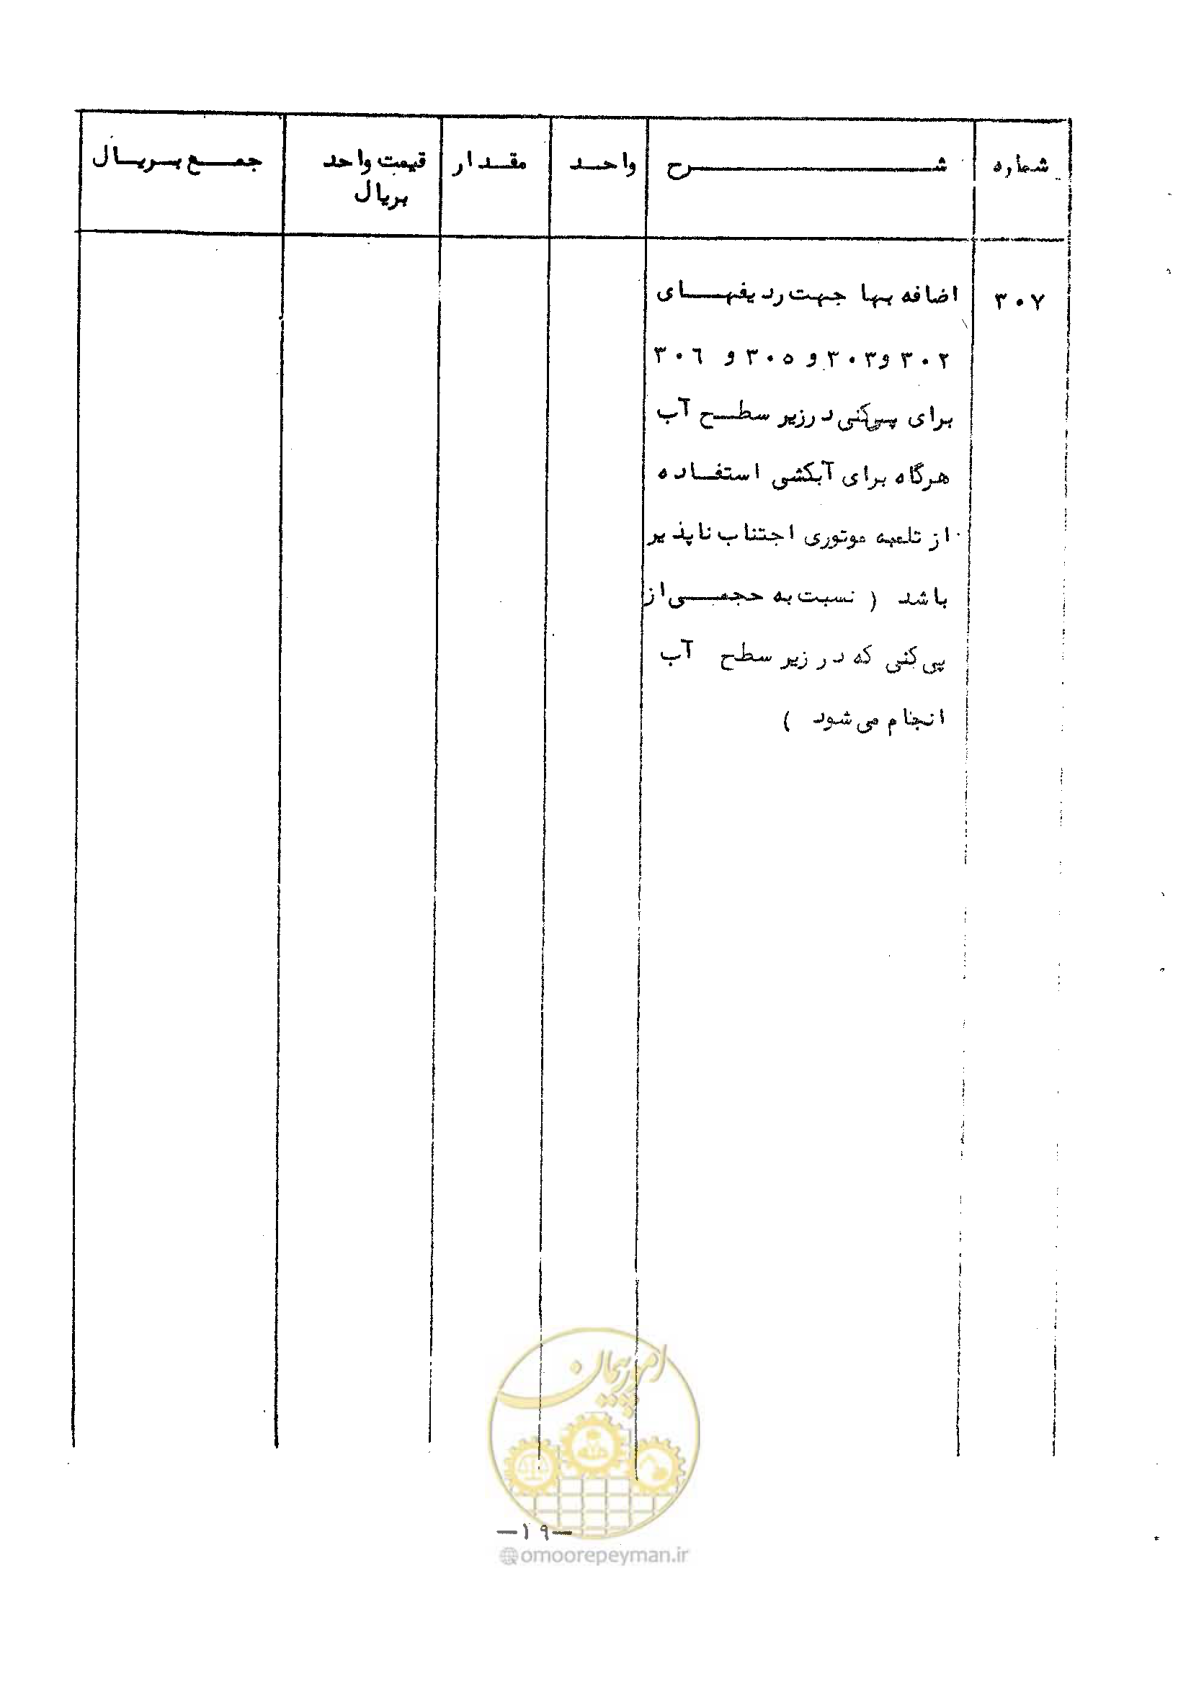 شماره شرح واحد مقدار قیمت واحد بریال جمع بریال
۳۰۷ اضافه بها جهت ردیفهای
۳۰۲ و ۳۰۳ و ۳۰۵ و ۳۰۶
برای پی‌کنی در زیر سطح آب
هرگاه برای آبکشی استفاده
از تلمبه موتوری اجتناب ناپذیر
باشد ( نسبت به حجمی از
پی‌کنی که در زیر سطح آب
انجام می‌شود )
امور پیمان
—۱۹—
@omoorepeyman.ir